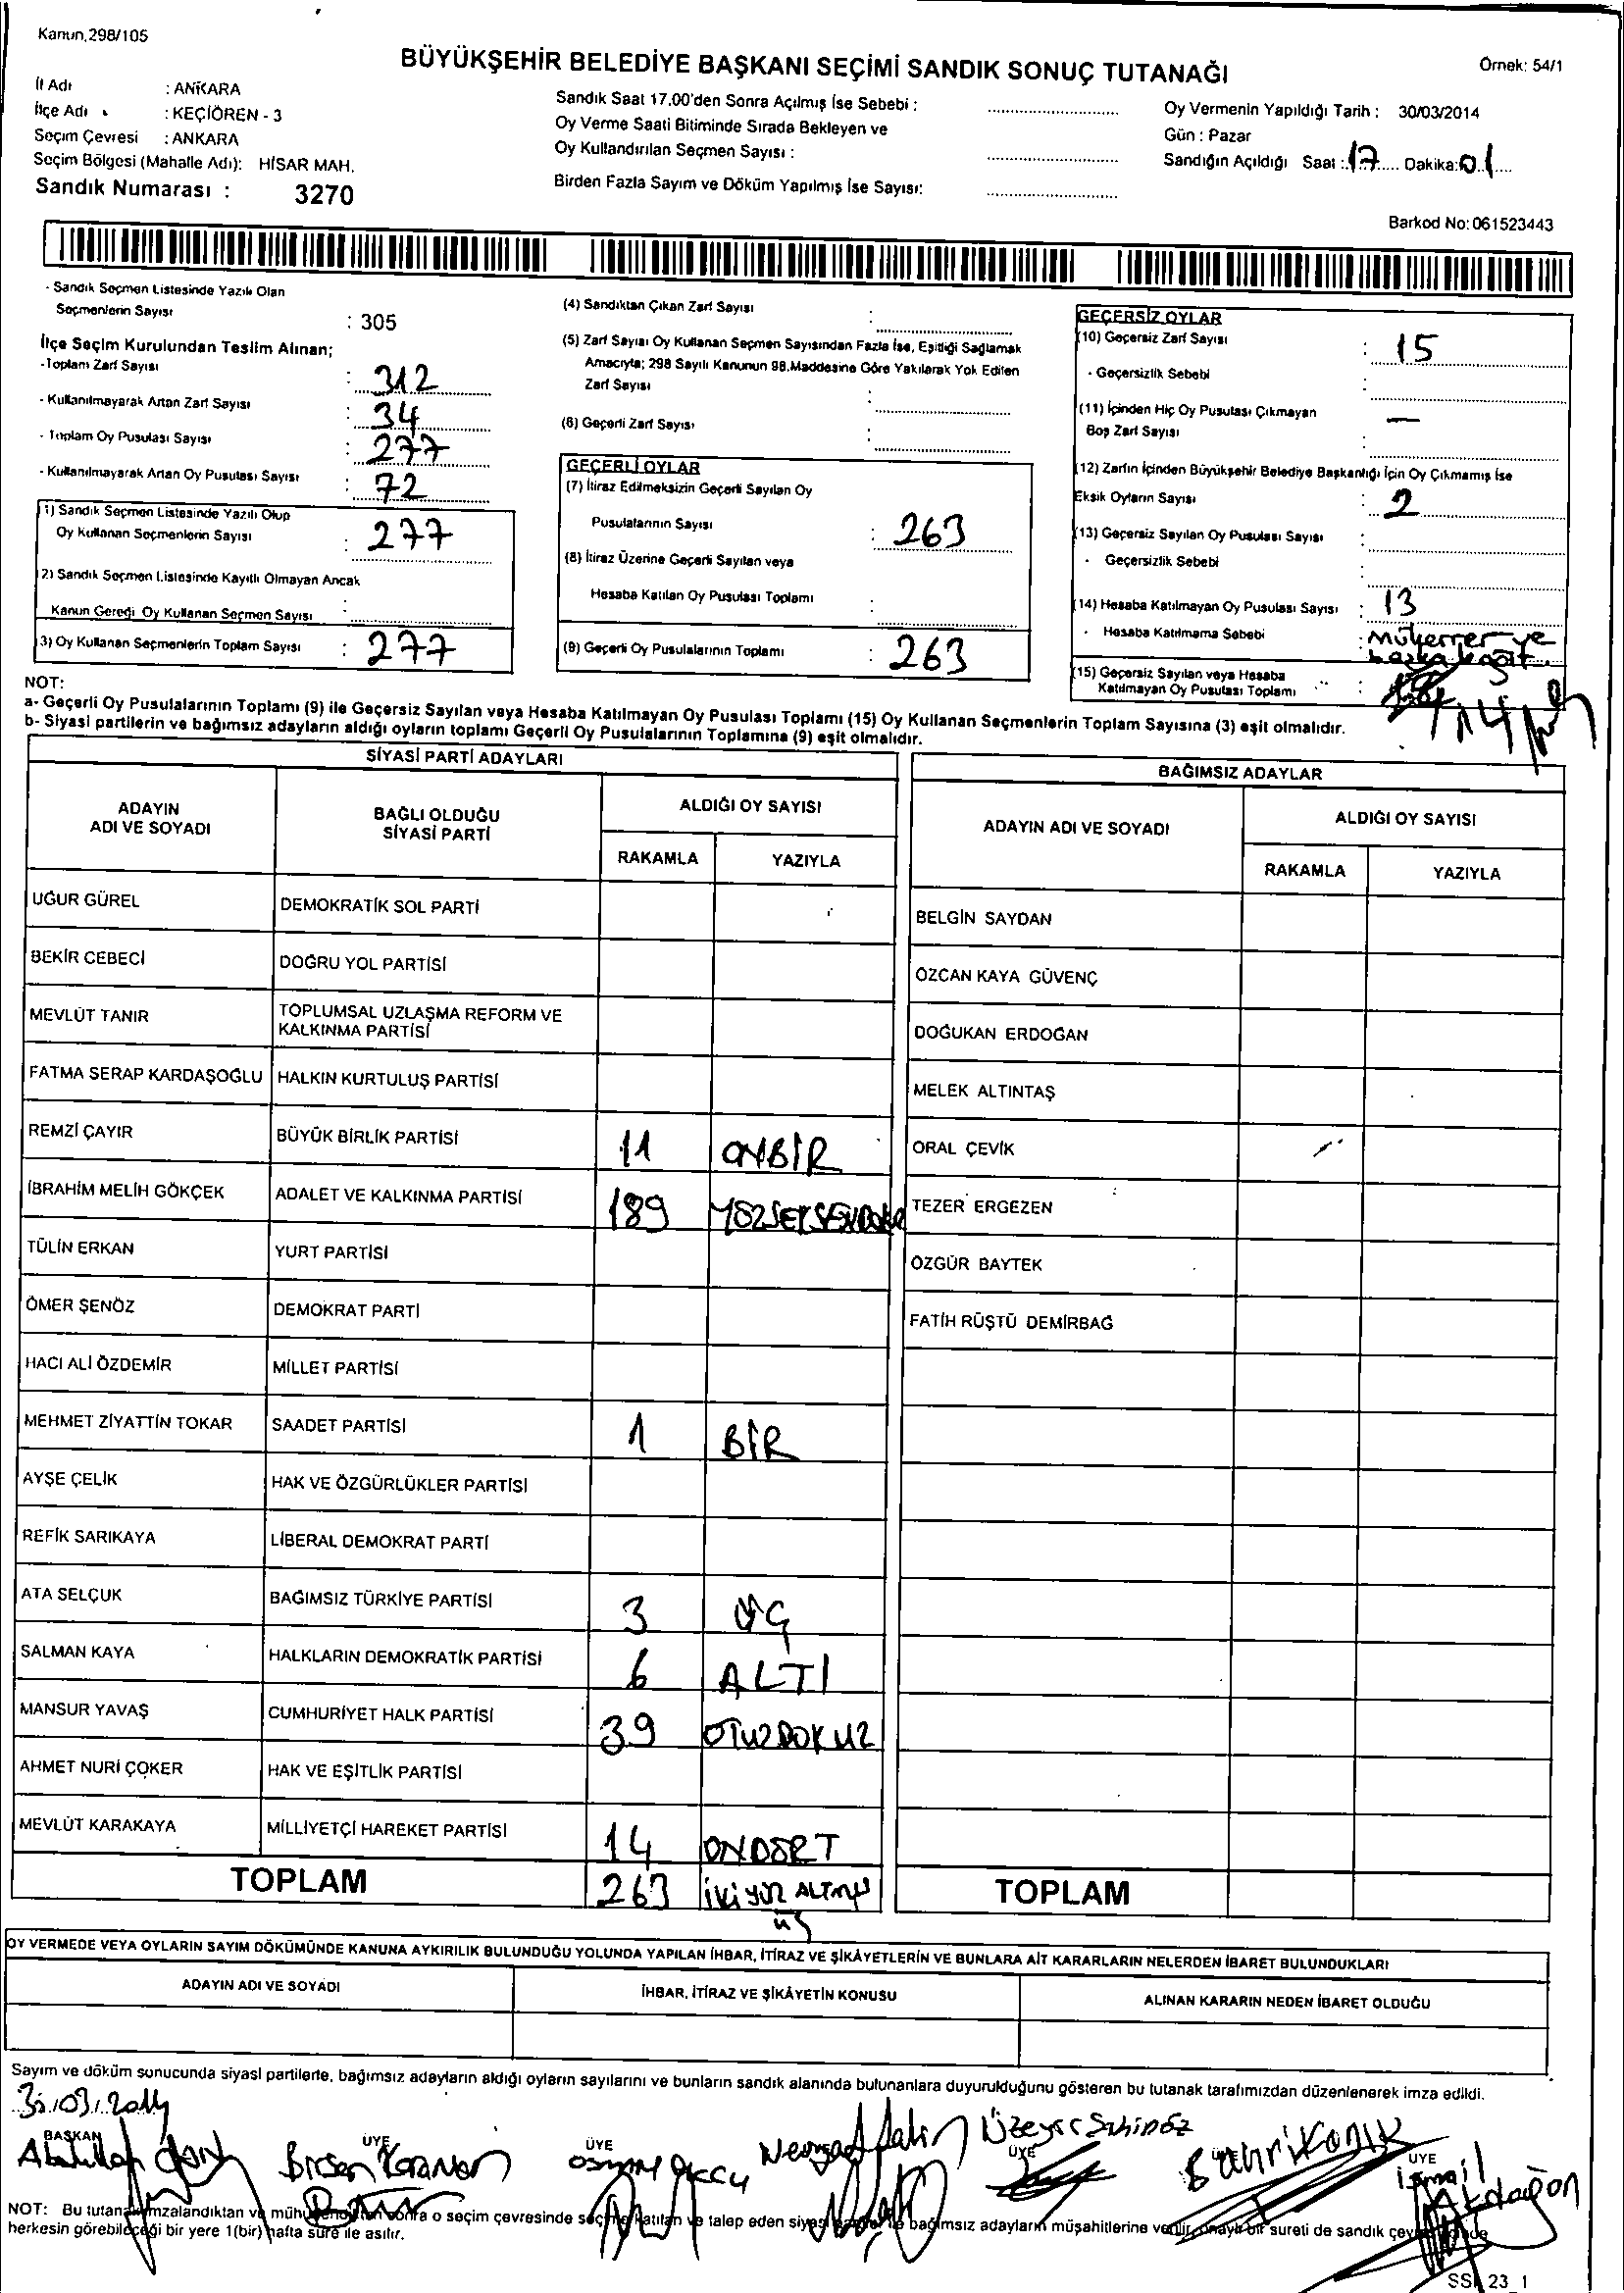 Kanun,298/105
BÜYÜKŞEHİR BELEDİYE BAŞKANI SEÇİMİ SANDIK SONUÇ TUTANAĞI
Örnek: 54/1
İl Adı : ANKARA
İlçe Adı : KEÇİÖREN - 3
Seçim Çevresi : ANKARA
Seçim Bölgesi (Mahalle Adı): HİSAR MAH.
Sandık Numarası : 3270
Sandık Saat 17.00'den Sonra Açılmış İse Sebebi :
Oy Verme Saati Bitiminde Sırada Bekleyen ve
Oy Kullandırılan Seçmen Sayısı :
Birden Fazla Sayım ve Döküm Yapılmış İse Sayısı:
Oy Vermenin Yapıldığı Tarih : 30/03/2014
Gün : Pazar
Sandığın Açıldığı Saat : 17 Dakika: 01
Barkod No: 061523443
- Sandık Seçmen Listesinde Yazılı Olan
Seçmenlerin Sayısı : 305
İlçe Seçim Kurulundan Teslim Alınan;
-Toplam Zarf Sayısı : 312
- Kullanılmayarak Artan Zarf Sayısı : 34
- Toplam Oy Pusulası Sayısı : 277
- Kullanılmayarak Artan Oy Pusulası Sayısı : 72
1) Sandık Seçmen Listesinde Yazılı Olup
Oy Kullanan Seçmenlerin Sayısı : 277
2) Sandık Seçmen Listesinde Kayıtlı Olmayan Ancak
Kanun Gereği Oy Kullanan Seçmen Sayısı :
3) Oy Kullanan Seçmenlerin Toplam Sayısı : 277
(4) Sandıktan Çıkan Zarf Sayısı :
(5) Zarf Sayısı Oy Kullanan Seçmen Sayısından Fazla İse, Eşitliği Sağlamak
Amacıyla; 298 Sayılı Kanunun 98.Maddesine Göre Yakılarak Yok Edilen
Zarf Sayısı :
(6) Geçerli Zarf Sayısı :
GEÇERLİ OYLAR
(7) İtiraz Edilmeksizin Geçerli Sayılan Oy
Pusulalarının Sayısı : 263
(8) İtiraz Üzerine Geçerli Sayılan veya
Hesaba Katılan Oy Pusulası Toplamı :
(9) Geçerli Oy Pusulalarının Toplamı : 263
GEÇERSİZ OYLAR
(10) Geçersiz Zarf Sayısı : 15
- Geçersizlik Sebebi :
(11) İçinden Hiç Oy Pusulası Çıkmayan
Boş Zarf Sayısı : —
(12) Zarfın İçinden Büyükşehir Belediye Başkanlığı İçin Oy Çıkmamış İse
Eksik Oyların Sayısı : 2
(13) Geçersiz Sayılan Oy Pusulası Sayısı :
- Geçersizlik Sebebi :
(14) Hesaba Katılmayan Oy Pusulası Sayısı : 13
- Hesaba Katılmama Sebebi : Mükerrer ve
başka kağıt
(15) Geçersiz Sayılan veya Hesaba
Katılmayan Oy Pusulası Toplamı : 14
NOT:
a- Geçerli Oy Pusulalarının Toplamı (9) ile Geçersiz Sayılan veya Hesaba Katılmayan Oy Pusulası Toplamı (15) Oy Kullanan Seçmenlerin Toplam Sayısına (3) eşit olmalıdır.
b- Siyasi partilerin ve bağımsız adayların aldığı oyların toplamı Geçerli Oy Pusulalarının Toplamına (9) eşit olmalıdır.
SİYASİ PARTİ ADAYLARI
ADAYIN ADI VE SOYADI BAĞLI OLDUĞU SİYASİ PARTİ ALDIĞI OY SAYISI
RAKAMLA YAZIYLA
UĞUR GÜREL DEMOKRATİK SOL PARTİ
BEKİR CEBECİ DOĞRU YOL PARTİSİ
MEVLÜT TANIR TOPLUMSAL UZLAŞMA REFORM VE
KALKINMA PARTİSİ
FATMA SERAP KARDAŞOĞLU HALKIN KURTULUŞ PARTİSİ
REMZİ ÇAYIR BÜYÜK BİRLİK PARTİSİ 11 ONBİR
İBRAHİM MELİH GÖKÇEK ADALET VE KALKINMA PARTİSİ 189 YÜZSEKSENDOKUZ
TÜLİN ERKAN YURT PARTİSİ
ÖMER ŞENÖZ DEMOKRAT PARTİ
HACI ALİ ÖZDEMİR MİLLET PARTİSİ
MEHMET ZİYATTİN TOKAR SAADET PARTİSİ 1 BİR
AYŞE ÇELİK HAK VE ÖZGÜRLÜKLER PARTİSİ
REFİK SARIKAYA LİBERAL DEMOKRAT PARTİ
ATA SELÇUK BAĞIMSIZ TÜRKİYE PARTİSİ 3 ÜÇ
SALMAN KAYA HALKLARIN DEMOKRATİK PARTİSİ 6 ALTI
MANSUR YAVAŞ CUMHURİYET HALK PARTİSİ 39 OTUZDOKUZ
AHMET NURİ ÇOKER HAK VE EŞİTLİK PARTİSİ
MEVLÜT KARAKAYA MİLLİYETÇİ HAREKET PARTİSİ 14 ONDÖRT
TOPLAM 263 İKİYÜZ ALTMIŞ
ÜÇ
BAĞIMSIZ ADAYLAR
ADAYIN ADI VE SOYADI ALDIĞI OY SAYISI
RAKAMLA YAZIYLA
BELGİN SAYDAN
ÖZCAN KAYA GÜVENÇ
DOĞUKAN ERDOĞAN
MELEK ALTINTAŞ
ORAL ÇEVİK
TEZER ERGEZEN
ÖZGÜR BAYTEK
FATİH RÜŞTÜ DEMİRBAĞ
TOPLAM
OY VERMEDE VEYA OYLARIN SAYIM DÖKÜMÜNDE KANUNA AYKIRILIK BULUNDUĞU YOLUNDA YAPILAN İHBAR, İTİRAZ VE ŞİKÂYETLERİN VE BUNLARA AİT KARARLARIN NELERDEN İBARET BULUNDUKLARI
ADAYIN ADI VE SOYADI İHBAR, İTİRAZ VE ŞİKÂYETİN KONUSU ALINAN KARARIN NEDEN İBARET OLDUĞU
Sayım ve döküm sonucunda siyasi partilerle, bağımsız adayların aldığı oyların sayılarını ve bunların sandık alanında bulunanlara duyurulduğunu gösteren bu tutanak tarafımızdan düzenlenerek imza edildi.
30.03.2014
BAŞKAN ÜYE ÜYE ÜYE ÜYE
Birsen Karaman Osman Üzeyir Şahinöz Bahri Konık İsmail Akdağon
NOT: Bu tutanak imzalandıktan ve mühürlendikten sonra o seçim çevresinde seçime katılan ve talep eden siyasi partiler ile bağımsız adayların müşahitlerine verilir, onaylı bir sureti de sandık çevresinde
herkesin görebileceği bir yere 1(bir) hafta süre ile asılır.
23_1